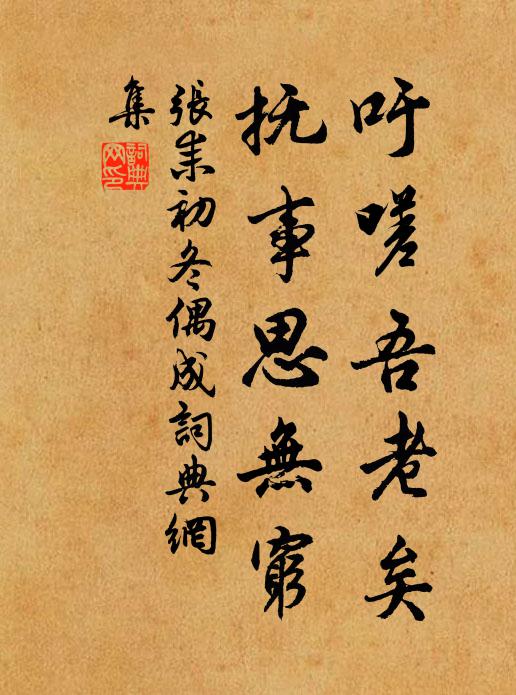 吁嗟吾老矣
抚事思無窮
張耒初冬偶成詞典網
集
詞典网印